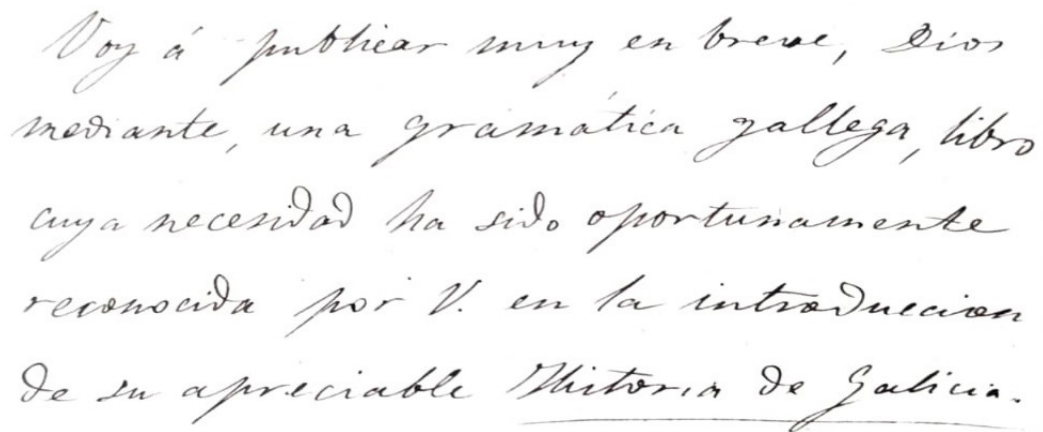 Voy á publicar muy en breve, Dios
mediante, una gramática gallega, libro
cuya necesidad ha sido oportunamente
reconocida por V. en la introduccion
de su apreciable Historia de Galicia.